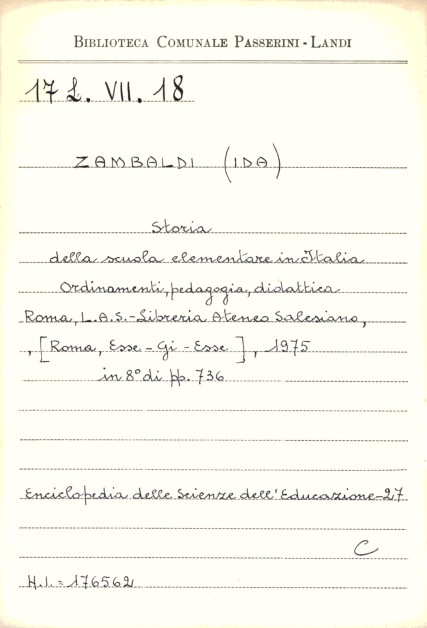 BIBLIOTECA COMUNALE PASSERINI - LANDI
17 L. VII. 18
ZAMBALDI (IDA)
Storia
della scuola elementare in Italia
Ordinamenti, pedagogia, didattica
Roma, L.A.S.-Libreria Ateneo Salesiano,
, [Roma, Esse-Gi-Esse], 1975
in 8° di pp. 736
Enciclopedia delle Scienze dell'Educazione-27
C
H.I.=176562